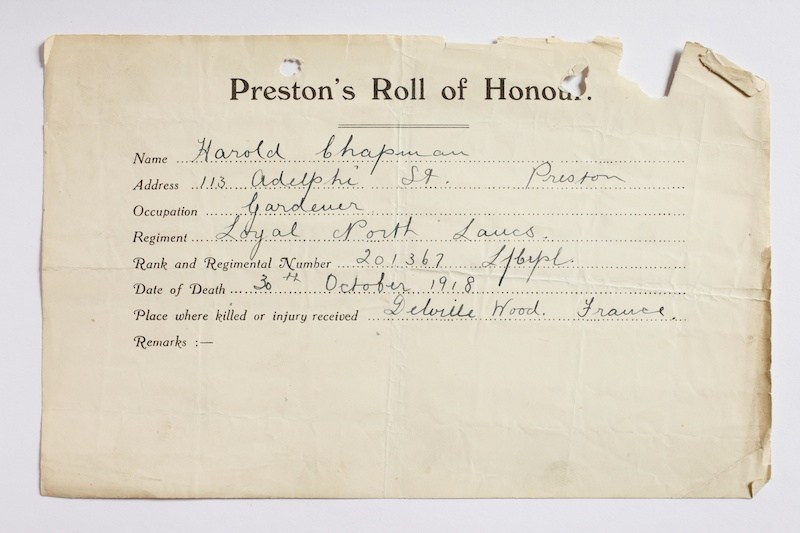 Preston's Roll of Honour.
Name Harold Chapman
Address 113 Adelphi St. Preston
Occupation Gardener
Regiment Loyal North Lancs.
Rank and Regimental Number 201367 L/Cpl.
Date of Death 30th October 1918
Place where killed or injury received Delville Wood. France.
Remarks :—